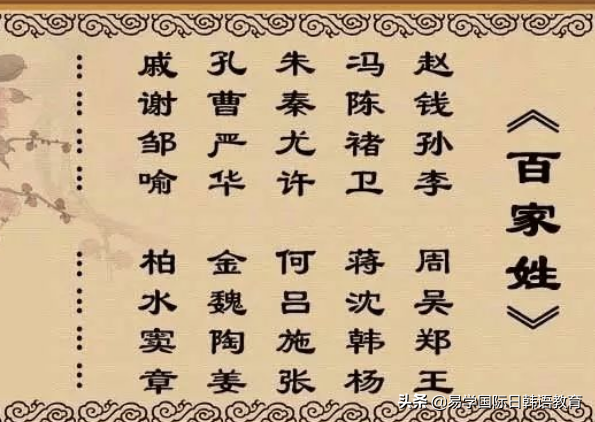 《百家姓》
赵钱孙李
周吴郑王
冯陈褚卫
蒋沈韩杨
朱秦尤许
何吕施张
孔曹严华
金魏陶姜
戚谢邹喻
柏水窦章
头条 @易学国际日韩语教育